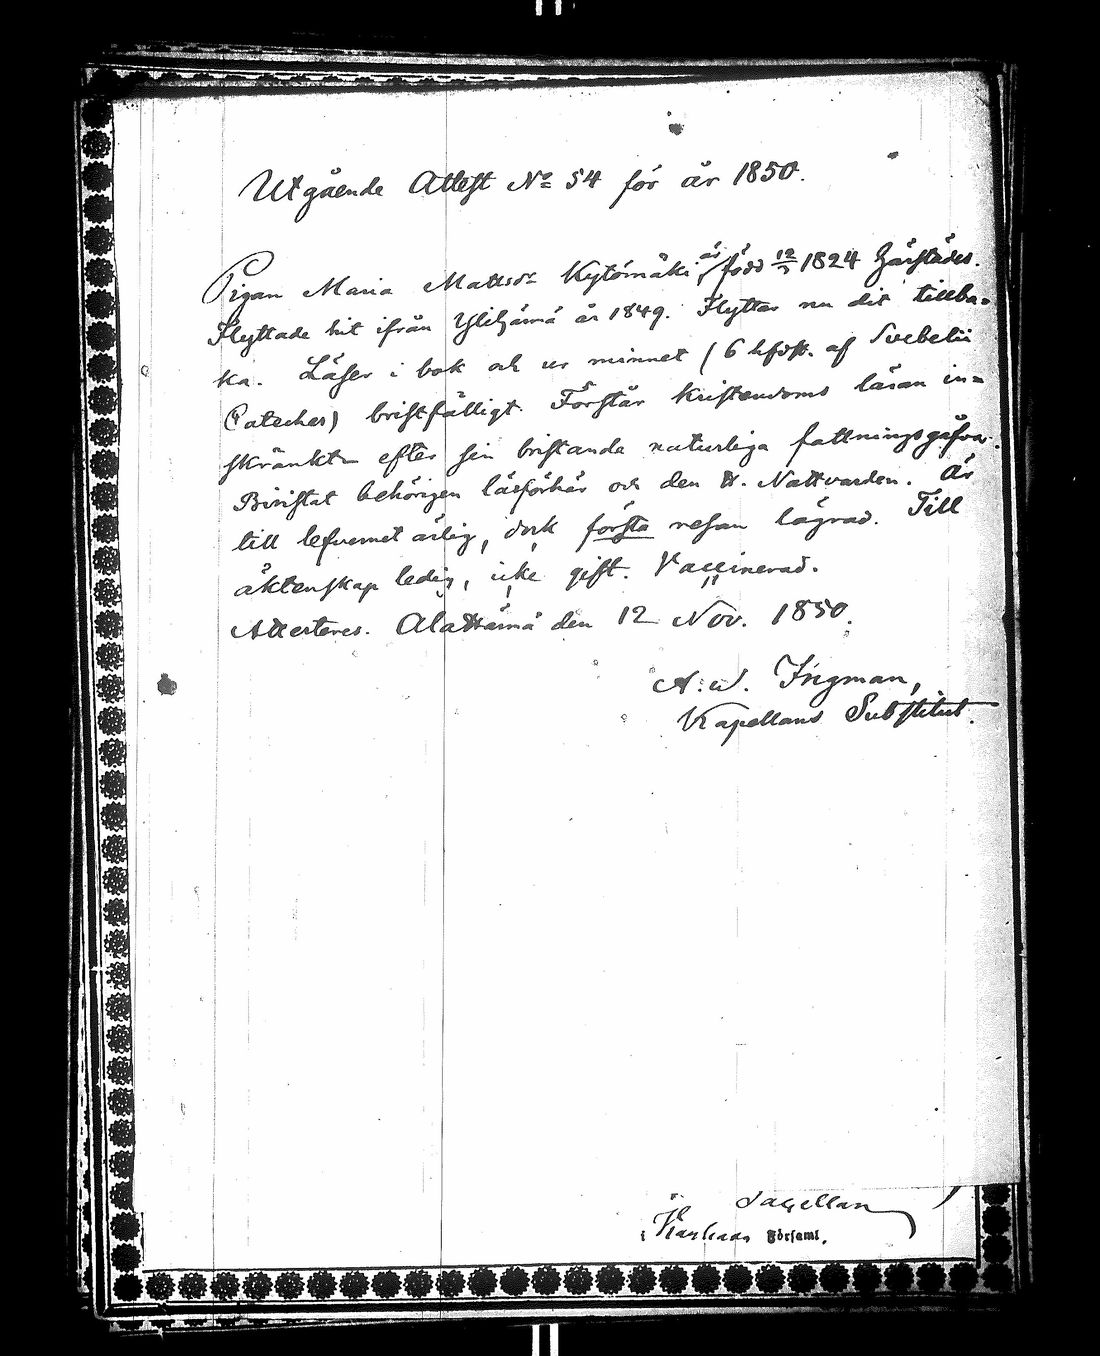 Utgående Attest No 54 för år 1850.
Pigan Maria Mattsdr Kytömäki är född 12/7 1824 härstädes.
Flyttade hit ifrån Ylihärmä år 1849. Flyttar nu dit tillba=
ka. Läser i bok och ur minnet (6 hfdst. af Svebelii
Cateches) bristfälligt. Förstår kristendoms läran in=
skränkt efter sin bristande naturliga fattningsgåfva.
Bivistat behörigen läsförhör och den H. Nattvarden. Är
till lefvernet ärlig, dock första resan lägrad. Till
äktenskap ledig, icke gift. Vaccinerad.
Attesteras. Alahärmä den 12 Nov. 1850.
A. W. Ingman,
Kapellans Substitut.
Kapellan
i Församl.